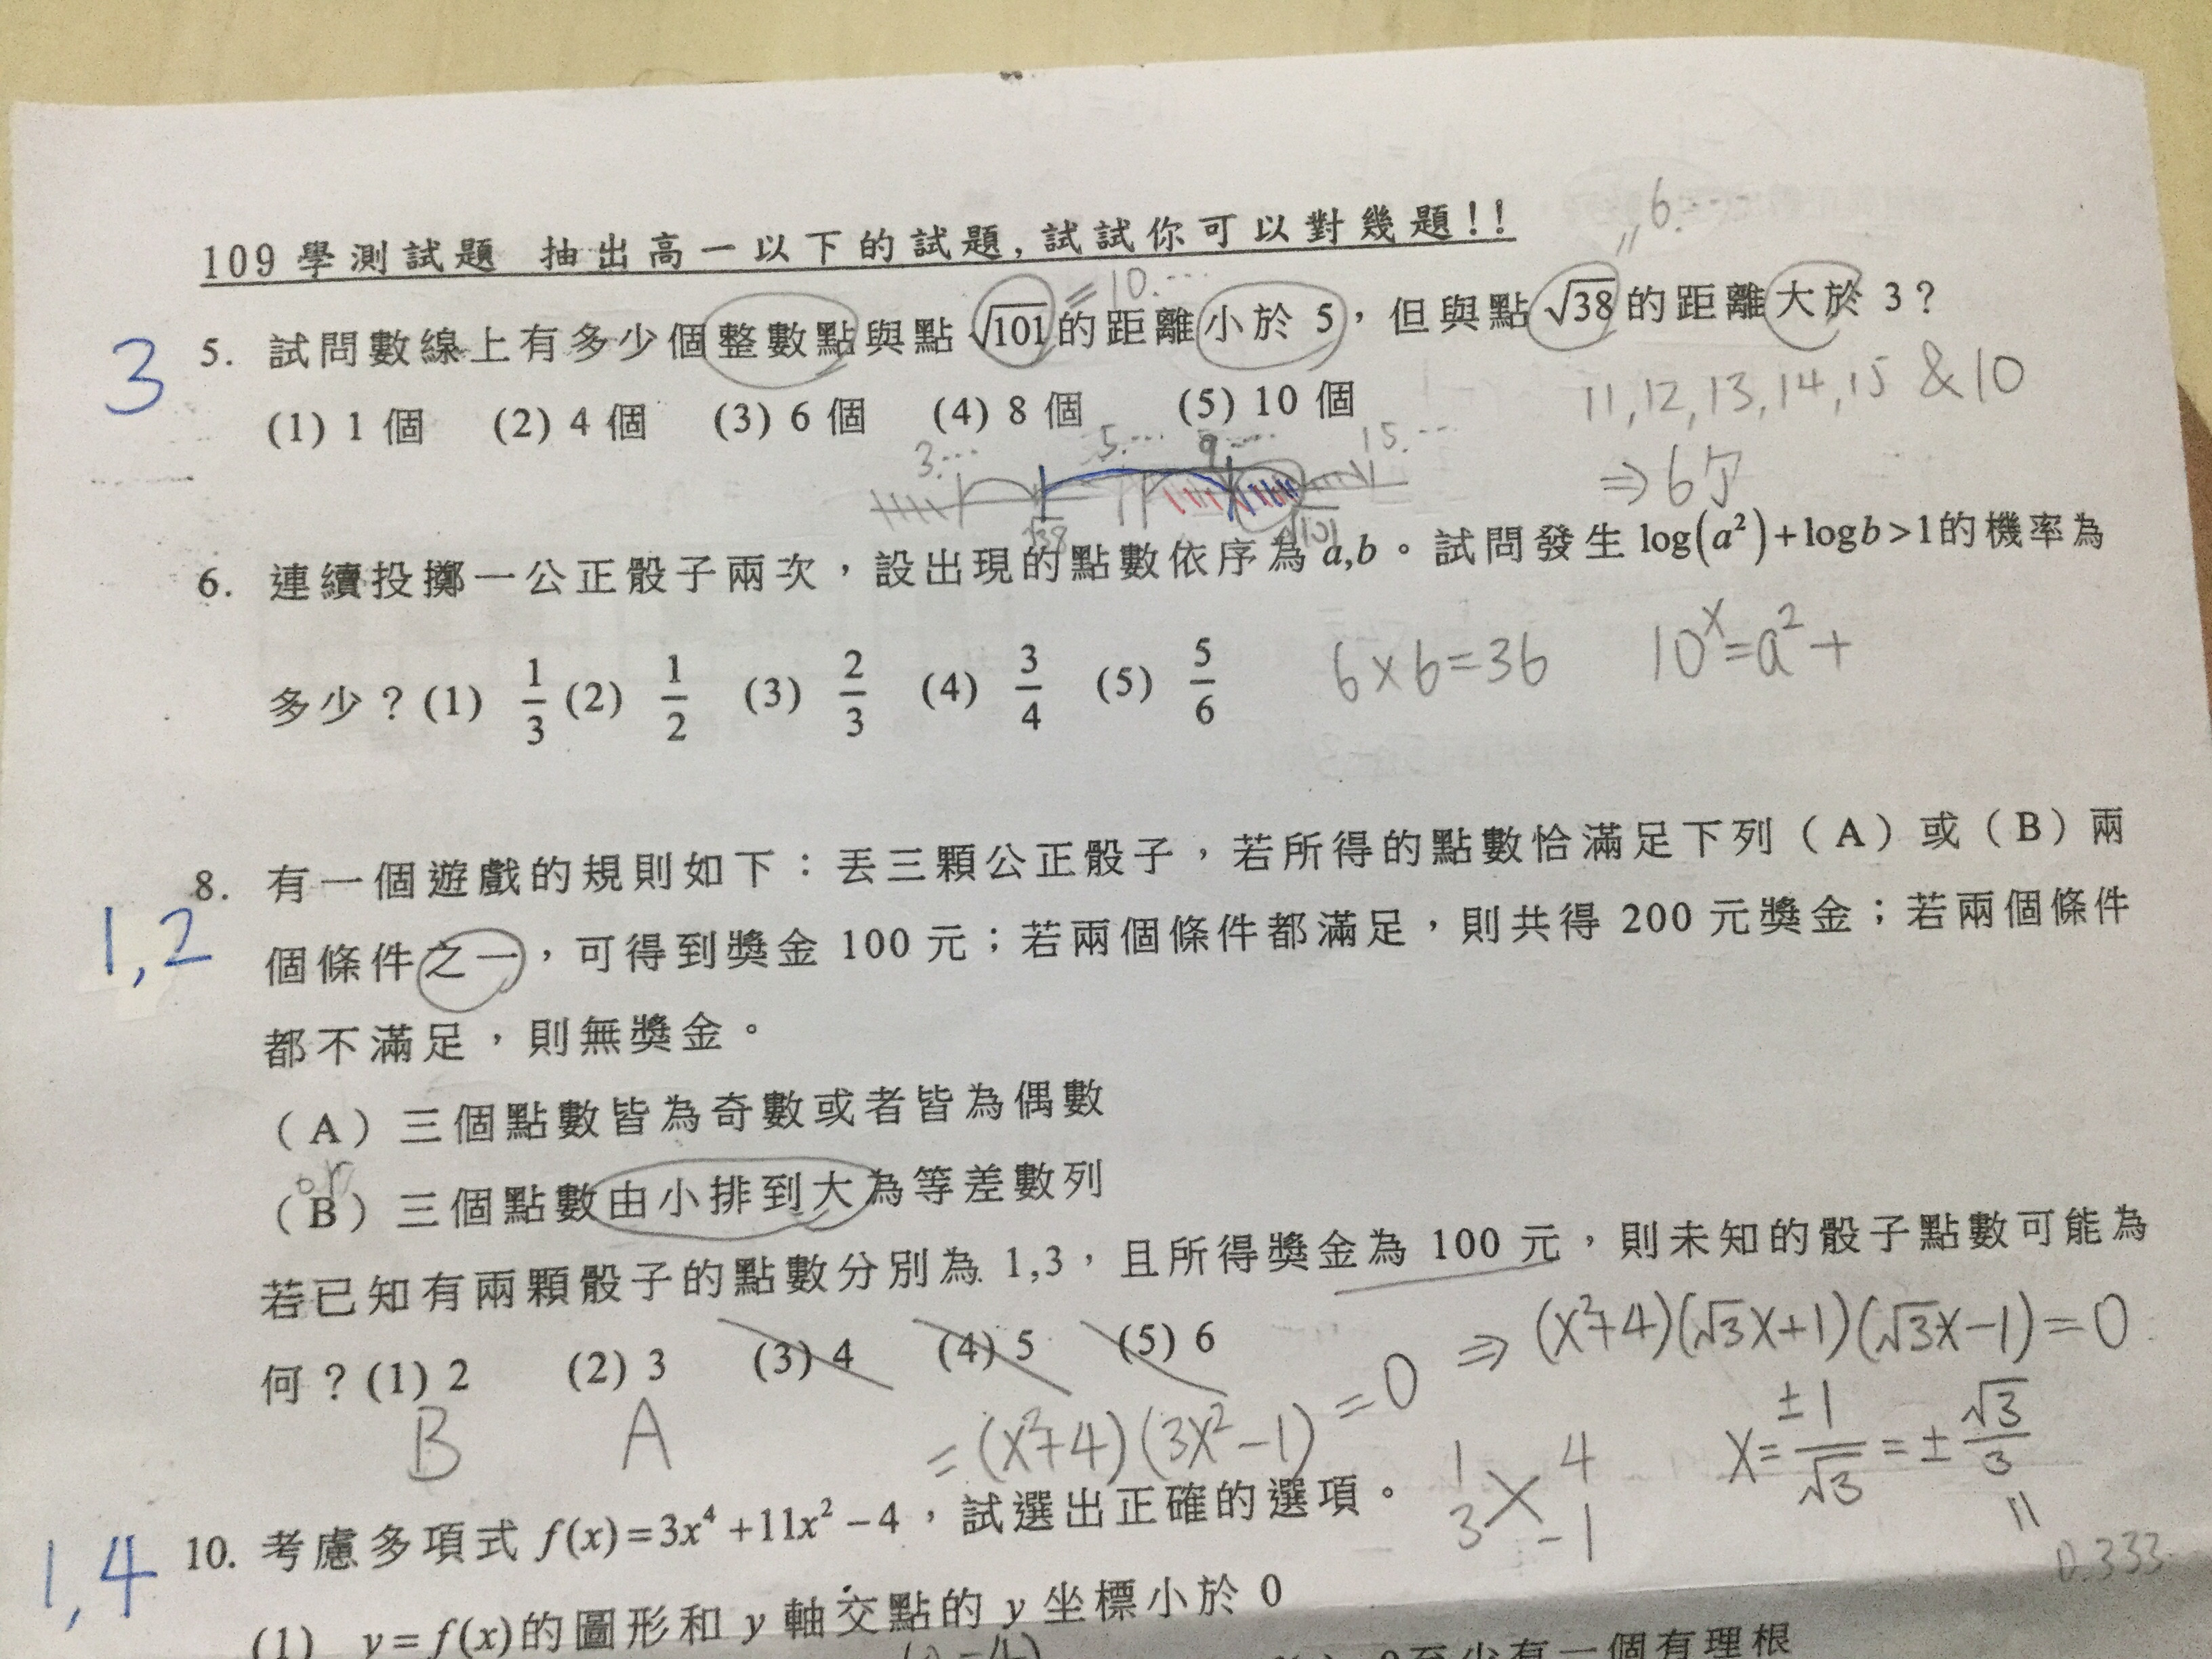 "6.…
109 學測試題 抽出高一以下的試題,試試你可以對幾題!!
=10.…
3
5. 試問數線上有多少個整數點與點 √101 的距離小於 5,但與點 √38 的距離大於 3?
(1) 1 個 (2) 4 個 (3) 6 個 (4) 8 個 (5) 10 個
11,12,13,14,15 &10
3.… 5.… 9.… 15.…
⇒6個
√38 √101
6. 連續投擲一公正骰子兩次,設出現的點數依序為 a,b。試問發生 log(a²)+logb>1的機率為
多少?(1) 1/3 (2) 1/2 (3) 2/3 (4) 3/4 (5) 5/6
6×6=36 10^x=a²+
1,2
8. 有一個遊戲的規則如下:丟三顆公正骰子,若所得的點數恰滿足下列(A)或(B)兩
個條件之一,可得到獎金 100 元;若兩個條件都滿足,則共得 200 元獎金;若兩個條件
都不滿足,則無獎金。
(A)三個點數皆為奇數或者皆為偶數
or
(B)三個點數由小排到大為等差數列
若已知有兩顆骰子的點數分別為 1,3,且所得獎金為 100 元,則未知的骰子點數可能為
何?(1) 2 (2) 3 (3) 4 (4) 5 (5) 6
B A
=(x²+4)(3x²-1)=0 ⇒(x²+4)(√3x+1)(√3x-1)=0
1 4
3 -1
x=±1/√3=±√3/3
"
0.333
1,4
10. 考慮多項式 f(x)=3x⁴+11x²-4,試選出正確的選項。
(1) y=f(x)的圖形和 y 軸交點的 y 坐標小於 0
0至少有一個有理根